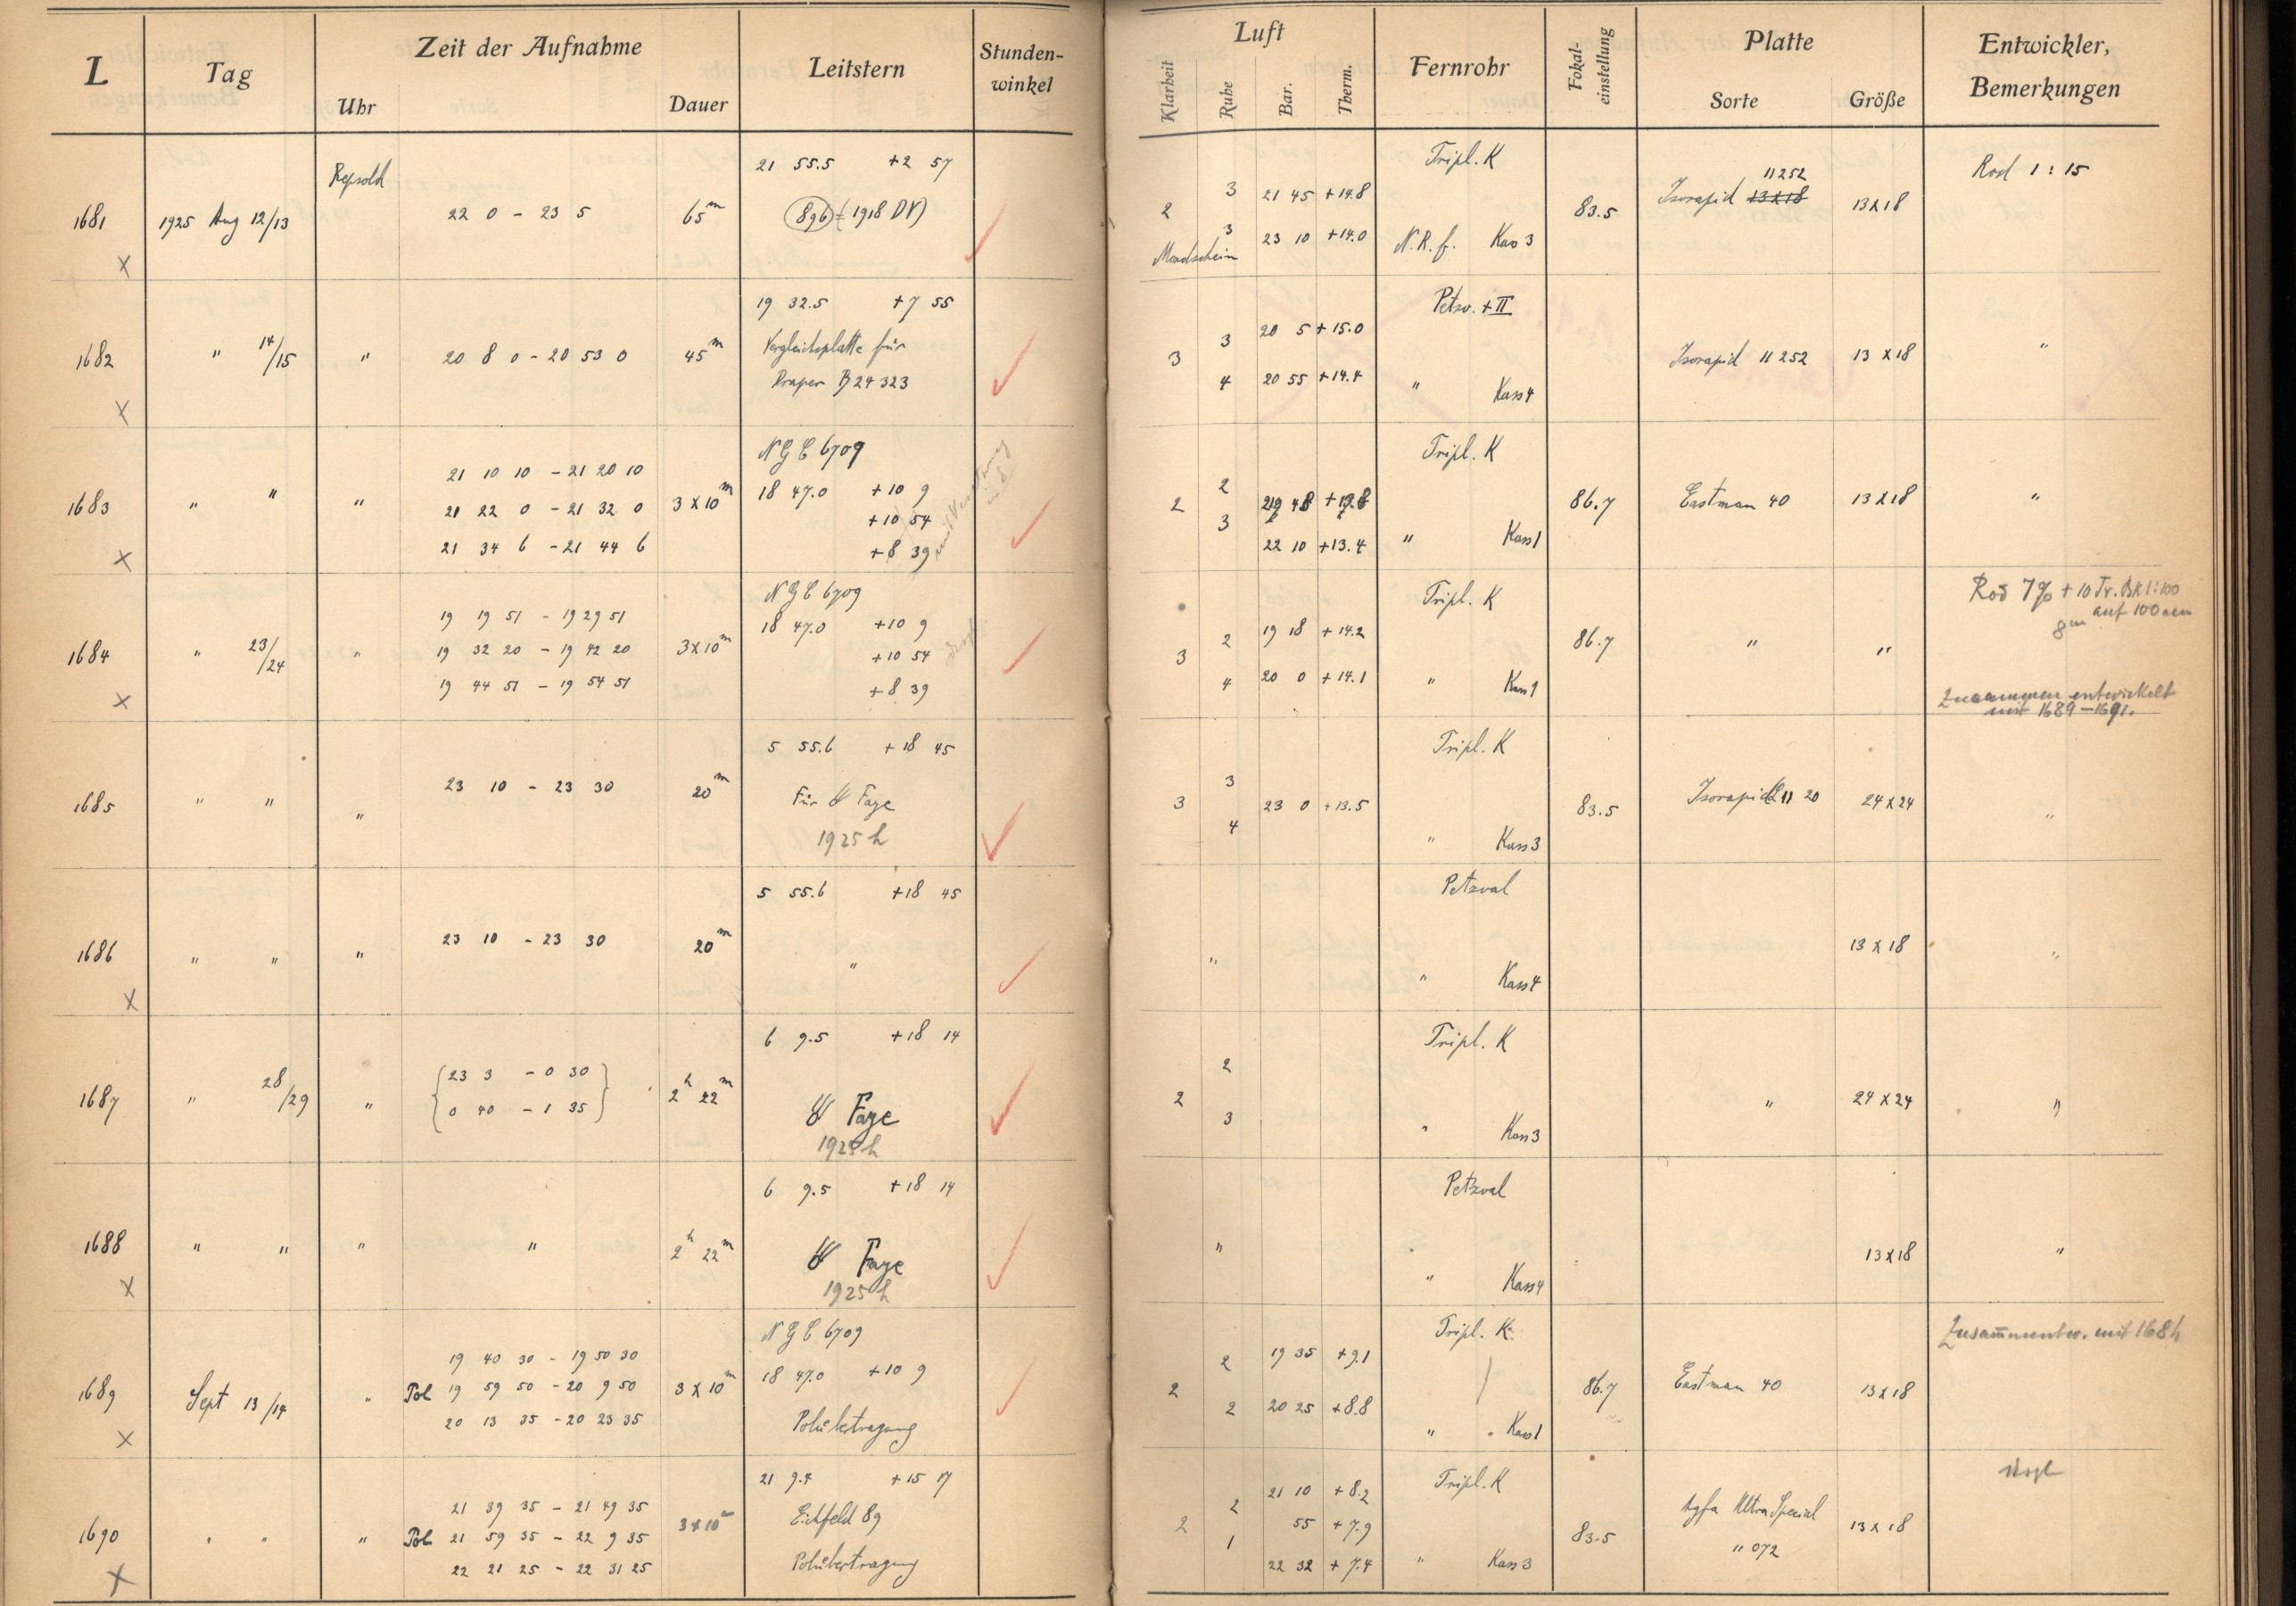 L Tag Zeit der Aufnahme Leitstern Stunden-winkel Luft Fernrohr Fokal-einstellung Platte Entwickler, Bemerkungen
Uhr Dauer Klarheit Ruhe Bar. Therm. Sorte Größe
Repsold 21 55.5 +2 57 Tripl. K 11252 Rod 1 : 15
1681 1925 Aug 12/13 22 0 - 23 5 65m 896 (= 1918 DV) 2 3 21 45 +14.8 83.5 Isorapid 13x18 13x18
X Mondschein 3 23 10 +14.0 N.R.f. Kas 3
19 32.5 +7 55 Petzv. + II
1682 " 14/15 " 20 8 0 - 20 53 0 45m Vergleichsplatte für 3 3 20 5 +15.0 Isorapid 11252 13 x18 "
X Draper B 24 323 4 20 55 +14.4 " Kass4
NGC 6709 Tripl. K
21 10 10 - 21 20 10 18 47.0 +10 9 2
1683 " " " 21 22 0 - 21 32 0 3 x 10m +10 54 2 3 86.7 Eastman 40 13x18 "
X 21 34 6 - 21 44 6 +8 39 22 10 +13.4 " Kass1
NGC 6709 Tripl. K Rod 7% + 10 Tr. BK 1:100
19 19 51 - 19 29 51 18 47.0 +10 9 2 19 18 +14.2 8m auf 100 ccm
1684 " 23/24 " 19 32 20 - 19 42 20 3x10m +10 54 3 86.7 " "
X 19 44 51 - 19 54 51 +8 39 4 20 0 +14.1 " Kass1 Zusammen entwickelt
mit 1689-1691.
5 55.6 +18 45 Tripl. K
1685 " " " 23 10 - 23 30 20m Für Faye 3 3 23 0 +13.5 83.5 Isorapid 11 20 24x24 "
1925 h 4 " Kass3
5 55.6 +18 45 Petzval
1686 " " " 23 10 - 23 30 20m " " 13 x 18 "
X " Kass4
6 9.5 +18 14 Tripl. K
1687 " 28/29 " 23 3 - 0 30 2h 22m Faye 2 2 " 24x24 "
0 40 - 1 35 1925 h 3 " Kass3
6 9.5 +18 14 Petzval
1688 " " " " 2h 22m Faye " 13x18 "
X 1925 h " Kass4
NGC 6709 Tripl. K. Zusammentw. mit 1684
19 40 30 - 19 50 30 18 47.0 +10 9 2 19 35 +9.1
1689 Sept 13/14 " Pol 19 59 50 - 20 9 50 3 x 10m 2 86.7 Eastman 40 13x18
X 20 13 35 - 20 23 35 Polübertragung 2 20 25 +8.8 " Kass1
21 9.4 +15 17 Tripl. K
21 39 35 - 21 49 35 Eichfeld 89 2 21 10 +8.2 Agfa Ultra Spezial
1690 " " " Pol 21 59 35 - 22 9 35 3x10m 2 1 55 +7.9 83.5 " 072 13x18
X 22 21 25 - 22 31 25 Polübertragung 22 32 +7.4 " Kass3